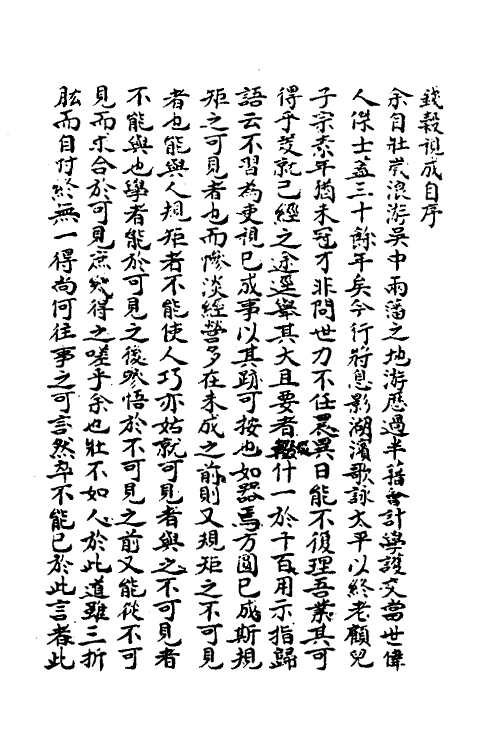 錢穀視成自序
余自壯歲浪游吳中兩藩之地游歷過半藉會計學談交當世偉
人傑士蓋三十餘年矣今行將息影湖濱歌詠太平以終老顧兒
子宗泰年猶未冠才非問世力不任異日能不復理吾業其可
得乎爰就已經之途逕舉其大且要者什一於千百用示指歸
語云不習為吏視已成事以其跡可按也如器焉方圓已成斯規
矩之可見者也而慘淡經營多在未成之前則又規矩之不可見
者也能與人規矩者不能使人巧亦姑就可見者與之不可見者
不能與也學者能於可見之後參悟於不可見之前又能從不可
見而求合於可見庶幾得之嗟乎余也壯不如人於此道雖三折
肱而自忖終無一得尚何往事之可言然卒不能已於此言者此